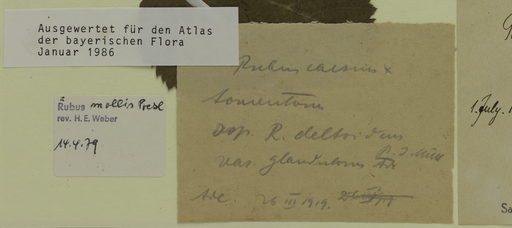 Ausgewertet für den Atlas
der bayerischen Flora
Januar 1986
Rubus mollis Presl
rev. H. E. Weber
14.4.79
Rubus caesius x
tomentosus
ssp. R. deltoideus
var. glandulosus P. J. Müll
26 III 1919.
1. July.